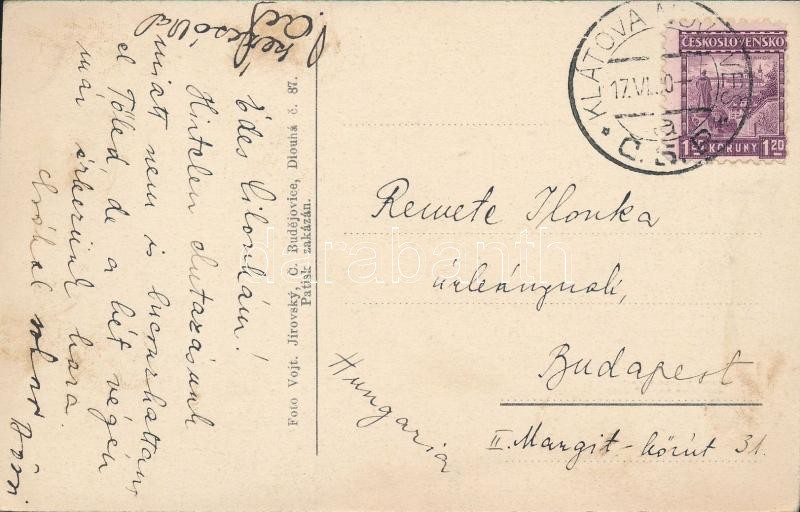 Édes Ilonkám!
Hirtelen elutazásunk
miatt nem is bucsuzhattam
el Tőled de a hét végén
már érkezünk haza.
Csókol
Foto Vojt. Jírovský, Č. Budějovice, Dlouhá č. 87.
Patisk zakázán.
KLATOVA NOVÁ VES
17.VI. 0-
a
Č.S.
ČESKOSLOVENSKO
1 20 KORUNY 1 20
Remete Ilonka
úrleánynak,
Budapest
II. Margit-körút 31.
Hungaria
darabanth